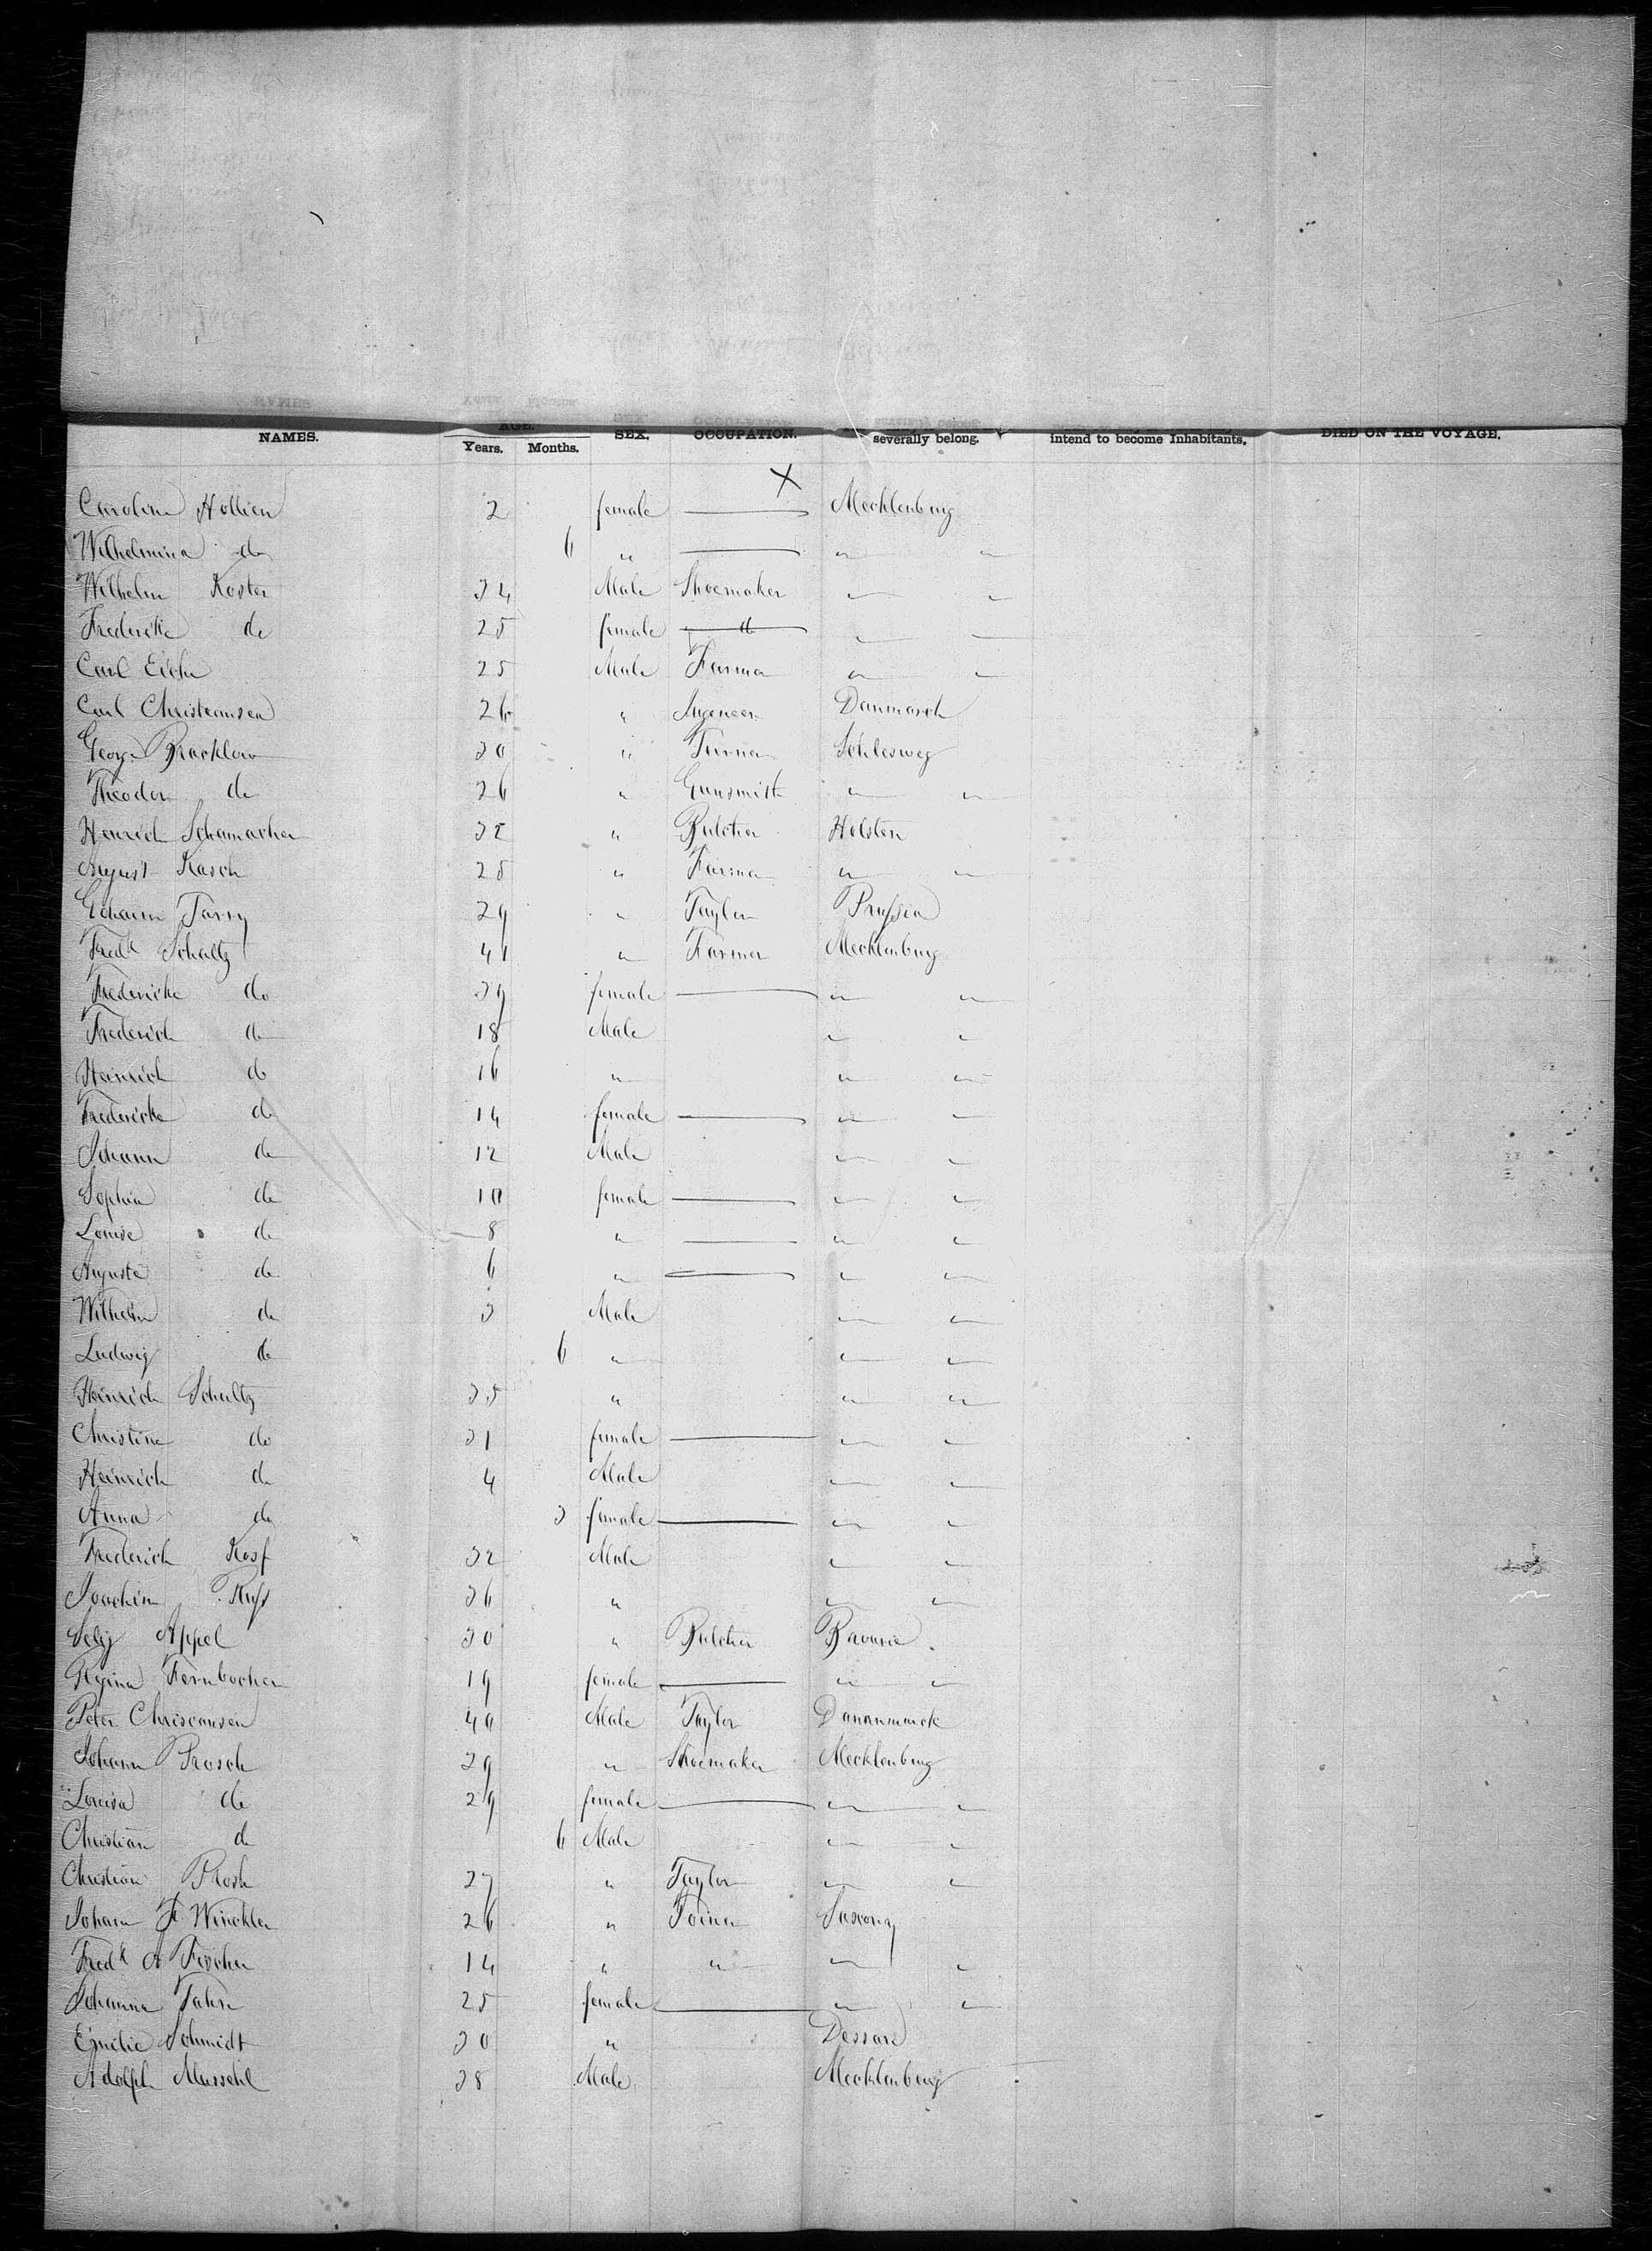 NAMES. AGE. Years. Months. SEX. OCCUPATION. severally belong. intend to become Inhabitants. DIED ON THE VOYAGE.
X
Caroline Hollien 2 female — Mecklenburg
Wilhelmina do 6 " — " "
Wilhelm Koster 34 Male Shoemaker " "
Frederike do 25 female do " "
Carl Eichn 25 Male Farmer " "
Carl Christeansen 26 " Ingeneer Danmarch
Georg Bracklow 30 " Turner Schlesweg
Theodor do 26 " Gunsmith " "
Henrich Schumacher 32 " Butcher Holsten
August Kasch 25 " Farmer " "
Johann Tarry 29 " Taylor Prussia
Fredk Schultz 41 " Farmer Mecklenburg
Frederiche do 39 female — " "
Frederich do 18 Male " "
Heinrich do 16 " " "
Frederiche do 14 female — " "
Johann do 12 Male " "
Sophia do 10 female — " "
Louise do 8 " — " "
Auguste do 6 " — " "
Wilhelm do 3 Male " "
Ludwig do 6 " " "
Heinrich Schultz 35 " " "
Christine do 31 female — " "
Heinrich do 4 Male " "
Anna do 3 female — " "
Frederich 32 Male " "
Joachim 36 " " "
Selig Appel 30 " Butcher Bavaria
Regina Fernbacher 19 female — " "
Peter Chriscansen 40 Male Taylor Dananmarck
Johann Prosch 29 " Shoemaker Mecklenburg
Louisa do 29 female — " "
Christian do 6 Male " "
Christian Prosh 27 " Taylor " "
Johann F. Winckler 26 " Joiner Saxony
Fredk A Fischer 14 " " " "
Johanne Jahn 25 female — " "
Emilie Schmidt 30 " Dessau
Adolph Mussehl 38 Male Mecklenburg